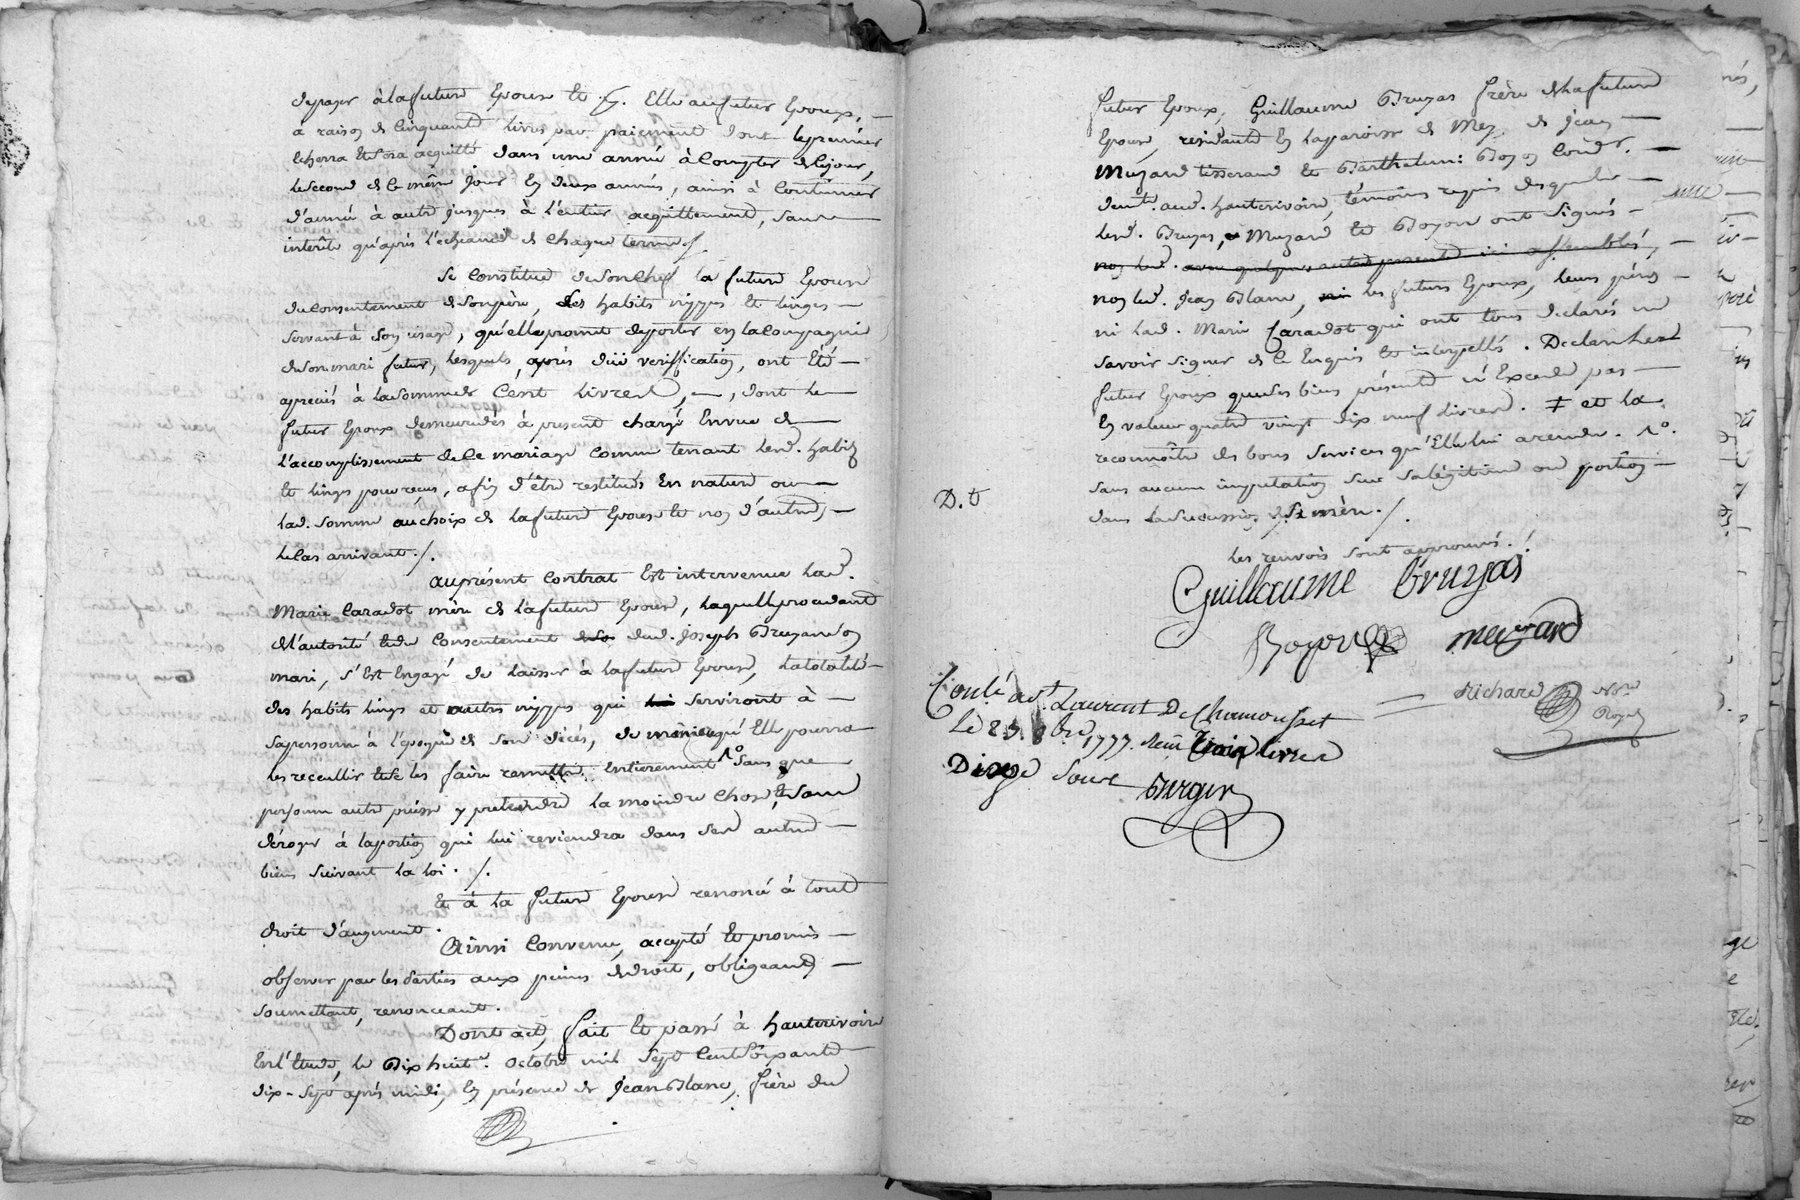 depayer à la future Epouse et Elle au futur Epoux,
a raison de Cinquante livres par paiement dont le premier
echerra et sera acquitté dans une année à Compter de ce jour,
le second de ce même jour En deux années, ainsi à Continuer
d'année à autre jusques à L'entier acquittement, sans
interêts qu'après L'echeance de Chaque terme ./.
Se Constitue de son Chef la future Epouse
du consentement de son père, Les habits nippes et linges
servant à Son usage, qu'elle promet de porter en la Compagnie
de son mari futur, Lesquels, après düe verification, ont Eté
apreciés à la somme de Cent Livres, dont le
futur Epoux demeure dés à present chargé Envue de
L'accomplissement de Ce mariage Comme tenant lesd. habits
et linges pour reçus, afin d'être restitués En nature ou
lad. somme au choix de la future Epouse et non d'autre,
le Cas arrivant ./.
au présent Contrat Est intervenue lad.
Marie Caradot mère de la future Epouse, Laquelle procedant
de L'autorité et du Consentement dud. Joseph Bruyas son
mari, s'Est Engagé de Laisser à la future Epouse, la totalité
des habits linges et autres nippes qui serviront à
sa personne à l'époque de Son décés, de manière qu'Elle pourra
les recueillir et se les faire remettre Entierement sans que
personne autre puisse y pretendre la moindre Chose, et Sans
déroger à la portion qui lui reviendra dans Ses autres
biens Suivant la loi ./.
Et à la future Epouse renoncé à tout
droit d'augment.
Ainsi Convenu, accepté et promis
observer par les Parties aux peines de droit, obligeant,
Soumettant, renonceant.
Dont acte, fait et passé à hauterivoire
En l'Etude, le Dix huit.e Octobre mil Sept Cent Soixante
dix-Sept après midi, En présence de Jean Blanc, frère du
futur Epoux, Guillaume Bruyas frère de la future
Epouse, residants En la paroisse de Meys, de Jean
Muzard tisserand et Barthelemi Boyon
demt. aud. hauterivoire, témoins requis desquels
lesd. Bruyas, Muzard et Boyon ont Signés
non led. avec quelques autres parents ici assemblés,
non led. Jean Blanc, ni les futurs Epoux, leurs pères
ni lad. Marie Caradot qui ont tous declarés ne
Savoir Signer de Ce Enquis et interpellés. Declarant led
futur Epoux que Ses biens présents n'Excedent pas
En valeur quatre vingt dix neuf Livres. ‡ et la
reconnoître des bons Services qu'Elle lui a rendu. 1o.
Sans aucune imputation Sur Sa légitime ou portion
D. t
dans la Succession de Sa mère ./.
Les renvois Sont approuvés ./.
Guillaume Bruyas
Boyon muzard
Richard Nre
Royal
Conlé a St. Laurent De Chamousset
Le 25 8bre 1777. Reçu trois livres
Dix Sous
Berger